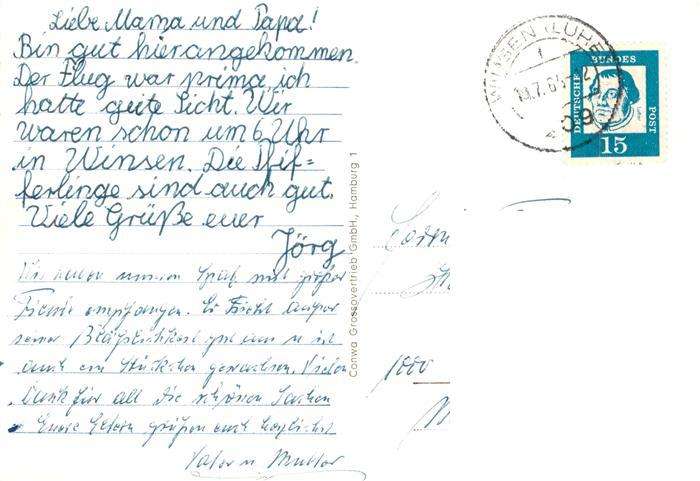 Liebe Mama und Papa!
Bin gut hier angekommen.
Der Flug war prima, ich
hatte gute Sicht. Wir
waren schon um 6 Uhr
in Winsen. Die Pfif=
ferlinge sind auch gut.
Viele Grüße euer
Jörg
mit großer
Freude empfangen. Er sieht außer
seiner gut aus u ist
auch ein Stückchen gewachsen. Vielen
Dank für all die schönen Sachen
Eure Eltern grüßen euch herzlichst
Vater u Mutter
Conwa Grossovertrieb GmbH., Hamburg 1
WINSEN (LUHE)
DEUTSCHE
BUNDES
POST
15
1000